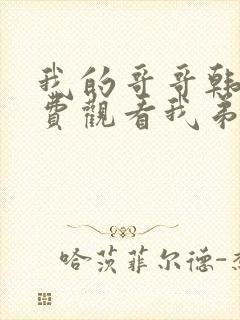 我的哥哥韩
费觀看我弟
哈茨菲尔德-杰